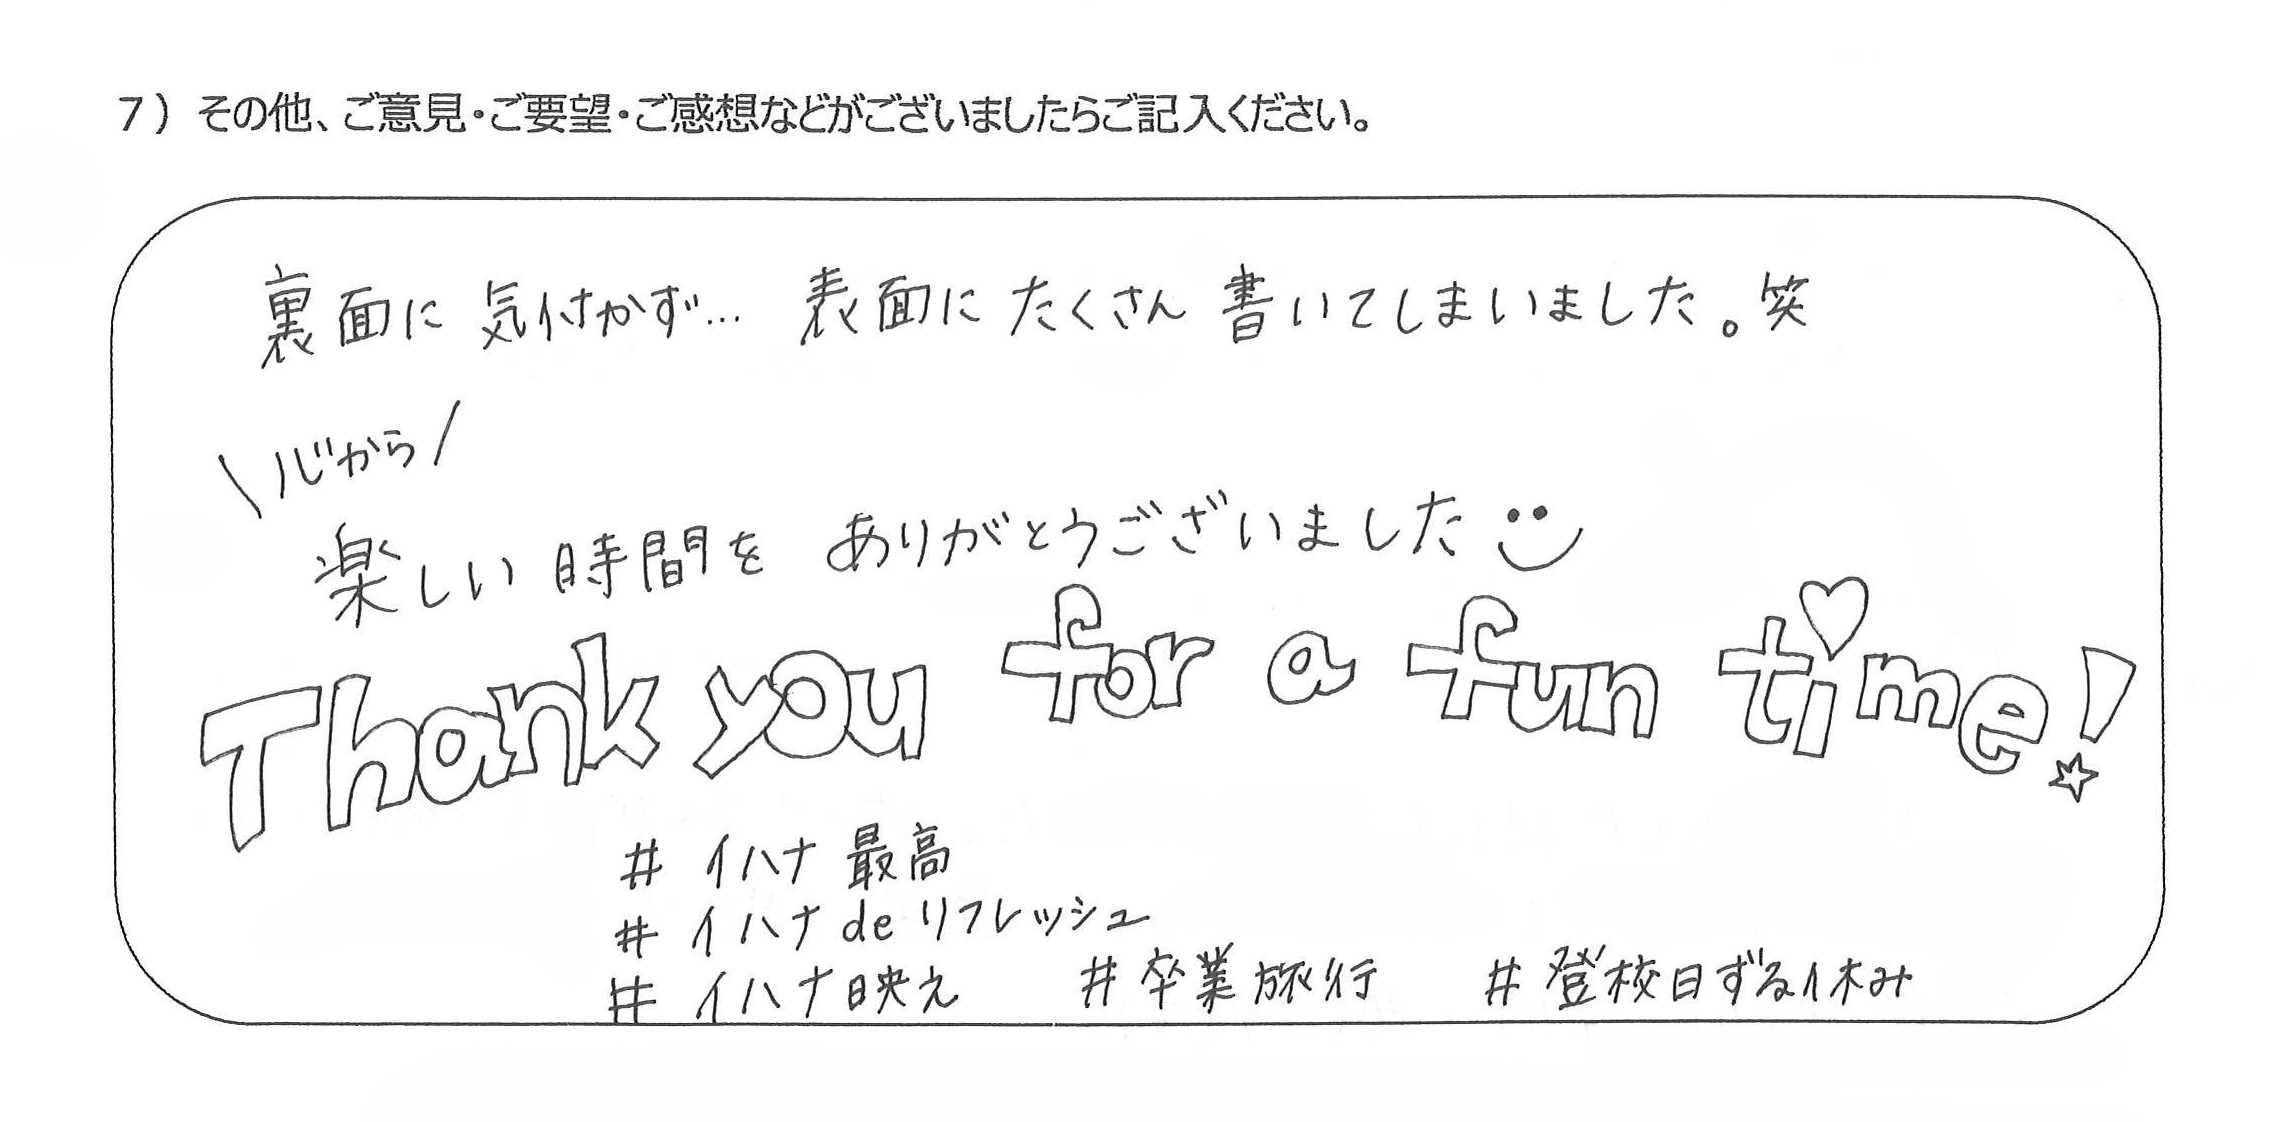 7）その他、ご意見・ご要望・ご感想などがございましたらご記入ください。
裏面に気付かず… 表面にたくさん書いてしまいました。笑
\心から/
楽しい時間を ありがとうございました
Thank you for a fun time!
# イハナ最高
# イハナ de リフレッシュ
# イハナ映え # 卒業旅行 # 登校日ずる休み